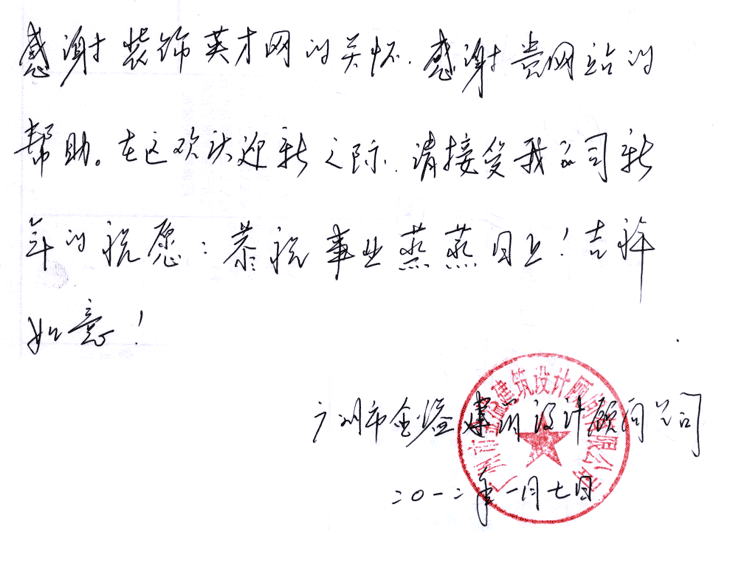 感谢装饰英才网的关怀.感谢贵网站的
帮助。在这欢庆迎新之际.请接受我公司新
年的祝愿：恭祝事业蒸蒸日上！吉祥
如意！
广州市金溢建筑设计顾问公司
二〇一二年一月七日